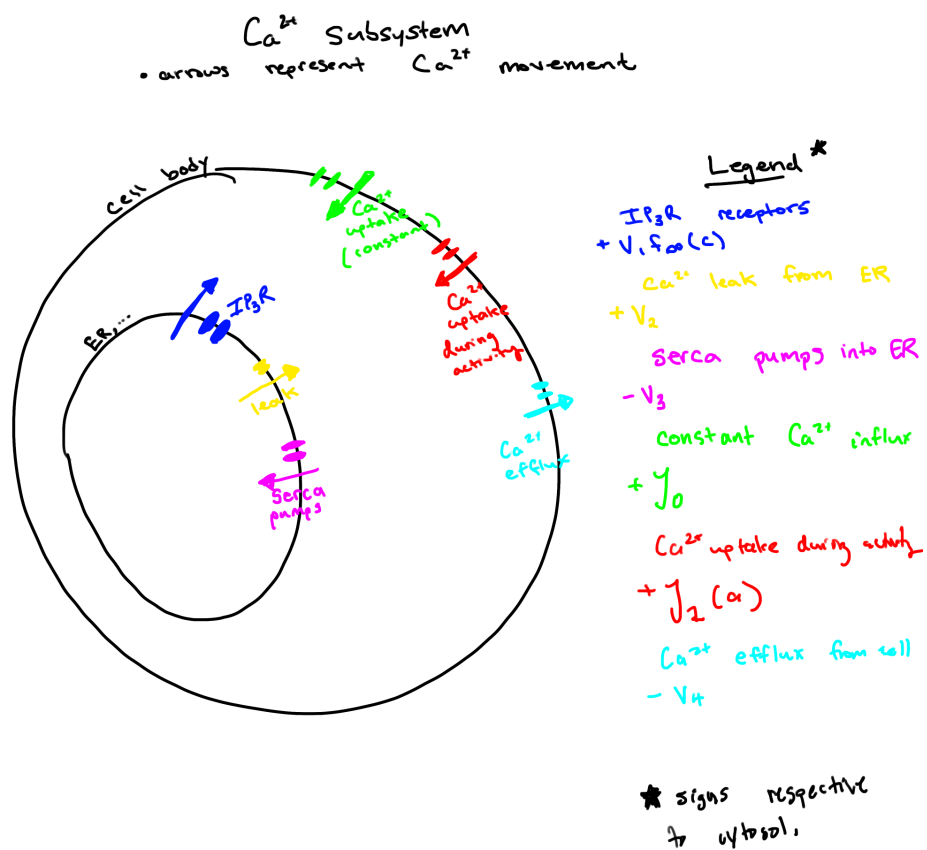 Ca²⁺ Subsystem
• arrows represent Ca²⁺ movement
cell body
Ca²⁺
uptake
(constant)
Ca²⁺
uptake
during
activity
IP₃R
ER,...
leak
Serca
pumps
Ca²⁺
efflux
Legend *
IP₃R receptors
+ V₁f∞(c)
Ca²⁺ leak from ER
+ V₂
Serca pumps into ER
- V₃
constant Ca²⁺ influx
+ J₀
Ca²⁺ uptake during activity
+ J₂ (a)
Ca²⁺ efflux from cell
- V₄
* signs respective
to cytosol.